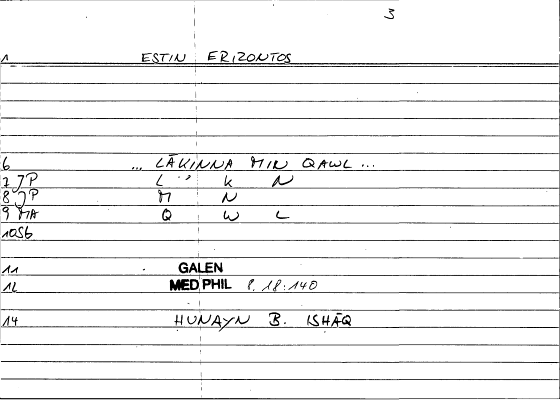 3
1 ESTIN ERIZONTOS
6 ... LĀKINNA MIN QAWL ...
7 JP L ʾ K N
8 JP M N
9 MA Q W L
10Sb
11 GALEN
12 MED PHIL 8.18:140
14 HUNAYN B. ISHĀQ